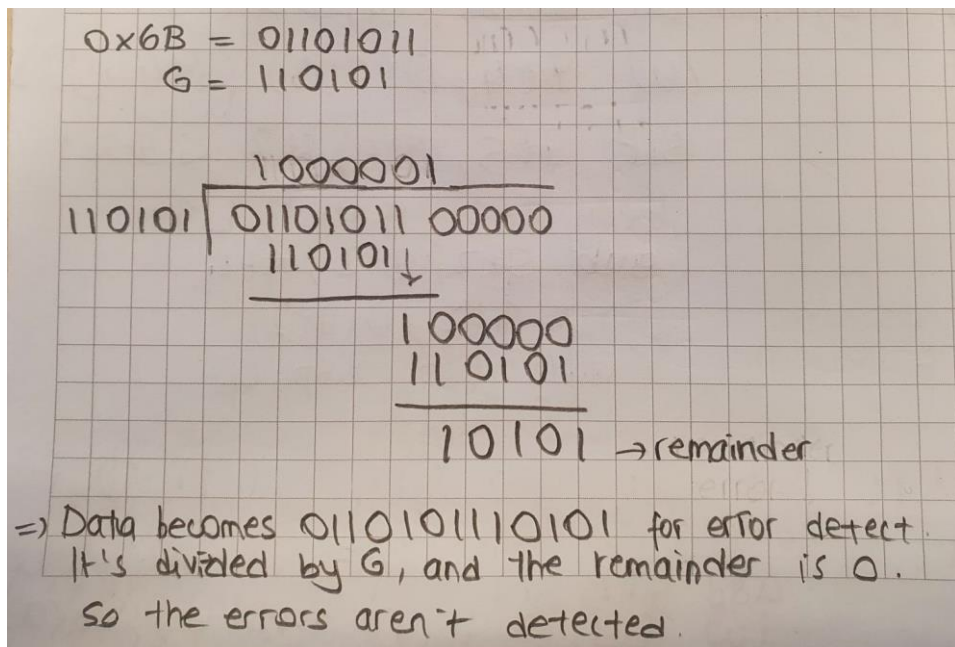 0x6B = 01101011
G = 110101
1000001
110101 01101011 00000
110101↓
100000
110101
10101 → remainder
=> Data becomes 0110101110101 for error detect.
It's divided by G, and the remainder is 0.
So the errors aren't detected.